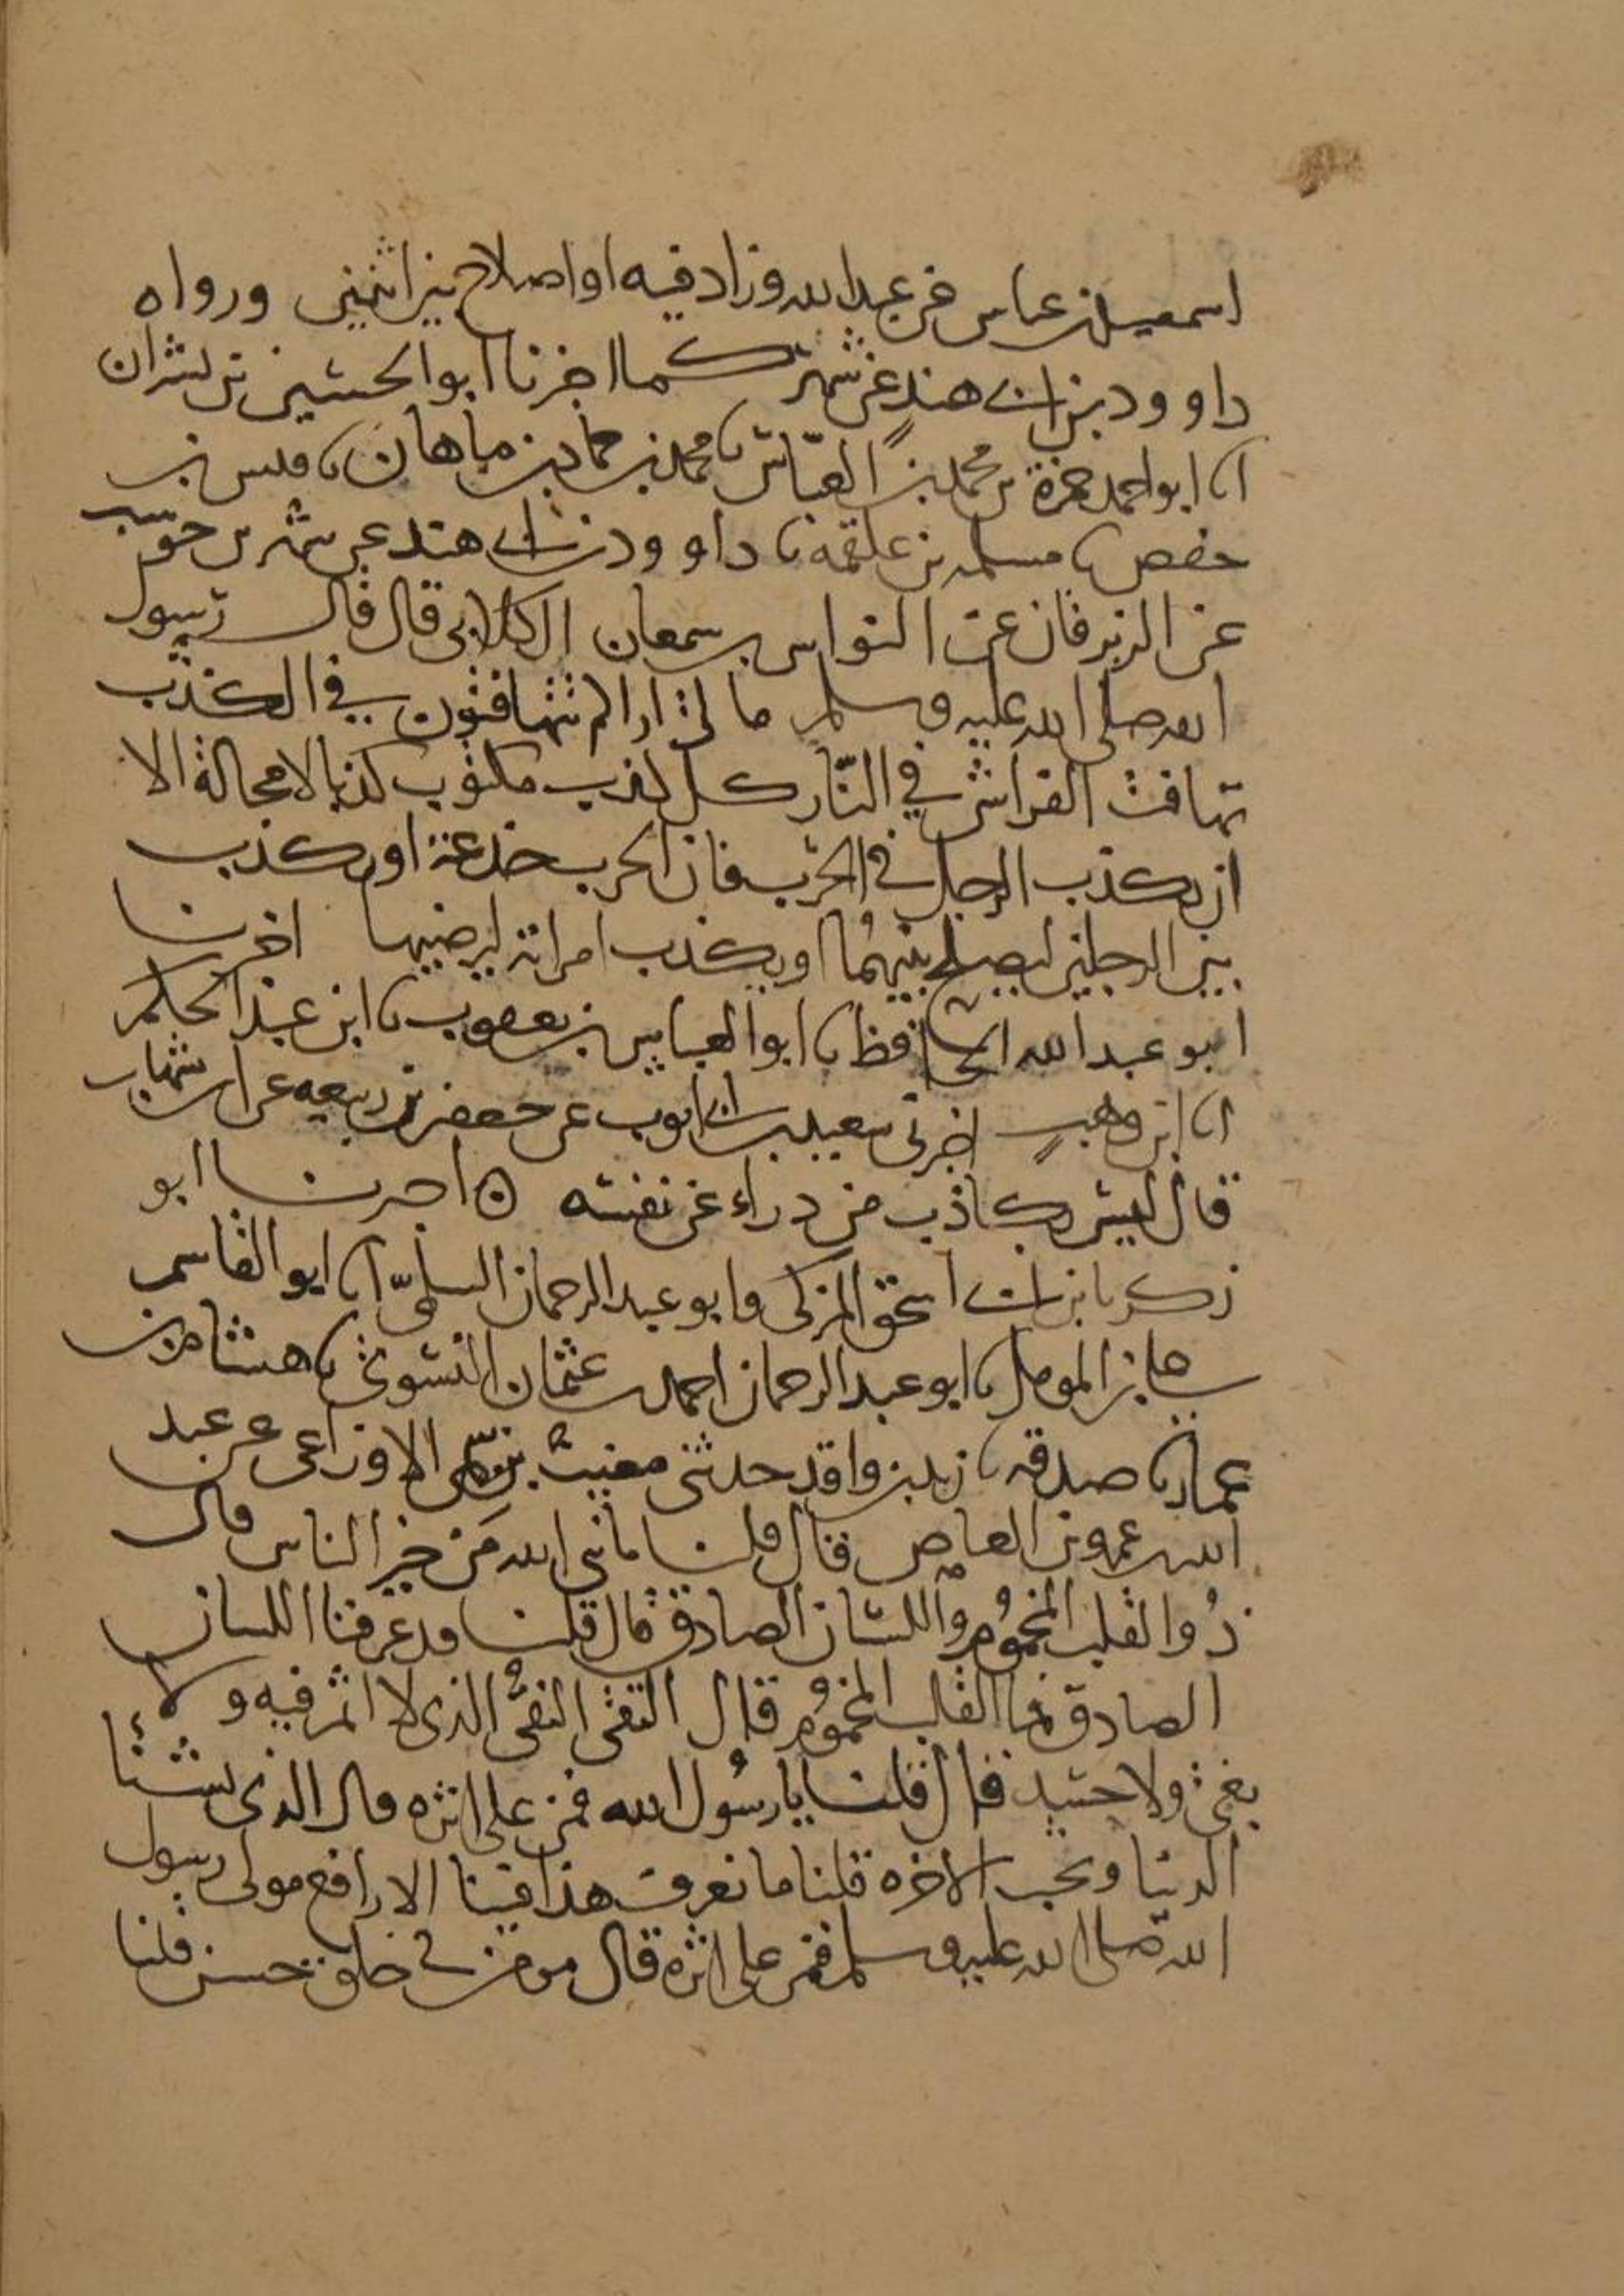 اسمعيل بن عياش عن عبد الله وزاد فيه او اصلاح بين اثنين ورواه
داوود بن ابي هند عن شهر كما اخبرنا ابو الحسين بن بشران
انا ابو احمد حمزة بن محمد بن العباس نا محمد بن حماد بن ماهان نا قيس بن
حفص نا مسلمه بن علقمة نا داوود بن ابي هند عن شهر بن حوشب
عن الزبرقان عن النواس بن سمعان الكلابي قال قال رسول
الله صلى الله عليه وسلم ما لي اراكم تتهافتون في الكذب
تهافت الفراش في النار كل كذب مكتوب كذبا لا محالة الا
ان يكذب الرجل في الحرب فان الحرب خدعة او يكذب
بين الرجلين ليصلح بينهما او يكذب امراته ليرضيها اخبرنا
ابو عبد الله الحافظ نا ابو العباس بن يعقوب نا ابن عبد الحكم
انا ابن وهب اخبرني سعيد بن ابي ايوب عن جعفر بن ربيعه عن ابن شهاب
قال ليس بكاذب من دراء عن نفسه ه اخبرنا ابو
زكريا بن ابي اسحق المزكي وابو عبد الرحمان السلمي انا ابو القاسم
بن المومل نا ابو عبد الرحمان احمد بن عثمان النسوي نا هشام بن
عمار نا صدقه نا زيد بن واقد حدثني مغيث بن سمي الاوزاعي عن عبد
الله بن عمرو بن العاص قال قلنا يا نبي الله من خير الناس قال
ذو القلب المخموم واللسان الصادق قال قلنا قد عرفنا اللسان
الصادق فما القلب المخموم قال التقي النقي الذي لا اثم فيه ولا
بغي ولا حسد قال قلنا يا رسول الله فمن على اثره قال الذي يشنا
الدنيا ويحب الاخره قلنا ما نعرف هذا فينا الا رافع مولى رسول
الله صلى الله عليه وسلم فمن على اثره قال مومن في خلق حسن قلنا